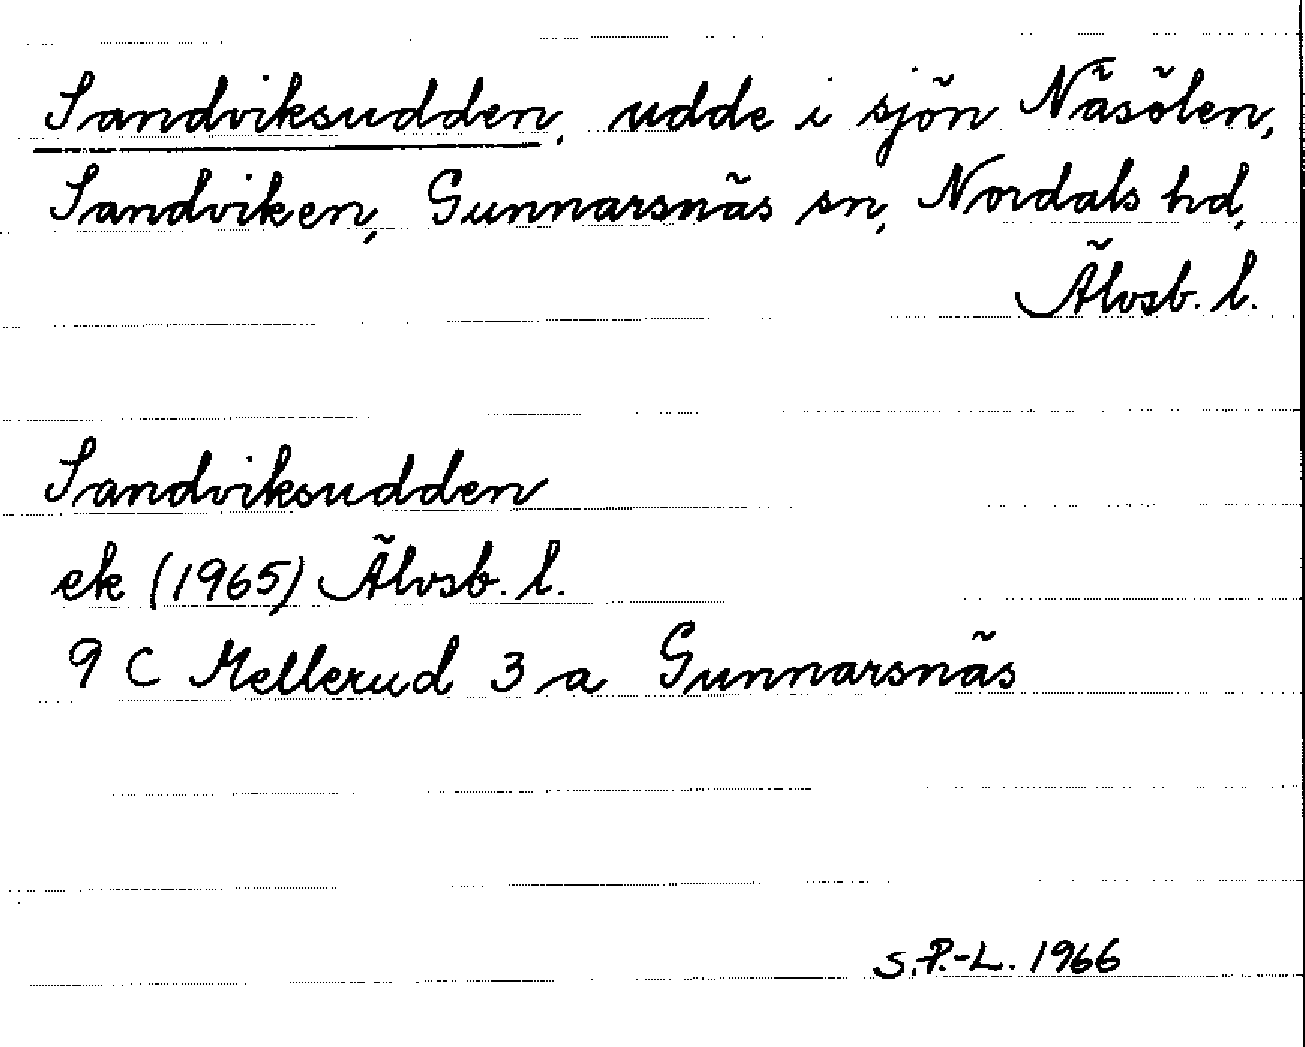 Sandviksudden, udde i sjön Näsölen,
Sandviken, Gunnarsnäs sn, Nordals hd,
Älvsb. l.
Sandviksudden
ek (1965) Älvsb. l.
9 C Mellerud 3 a Gunnarsnäs
S.P.-L. 1966